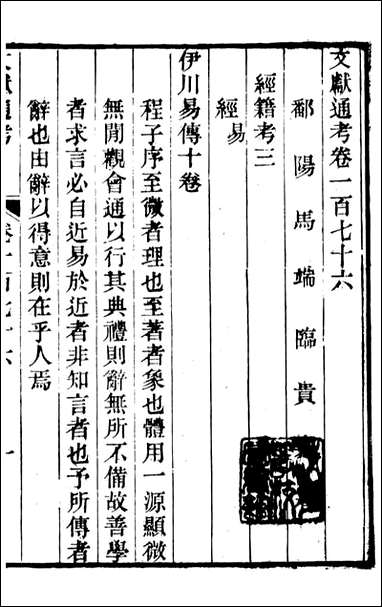 文獻通考卷一百七十六
鄱陽馬端臨貴與
經籍考三
經易
伊川易傳十卷
程子序至微者理也至著者象也體用一源顯微
無閒觀會通以行其典禮則辭無所不備故善學
者求言必自近易於近者非知言者也予所傳者
辭也由辭以得意則在乎人焉